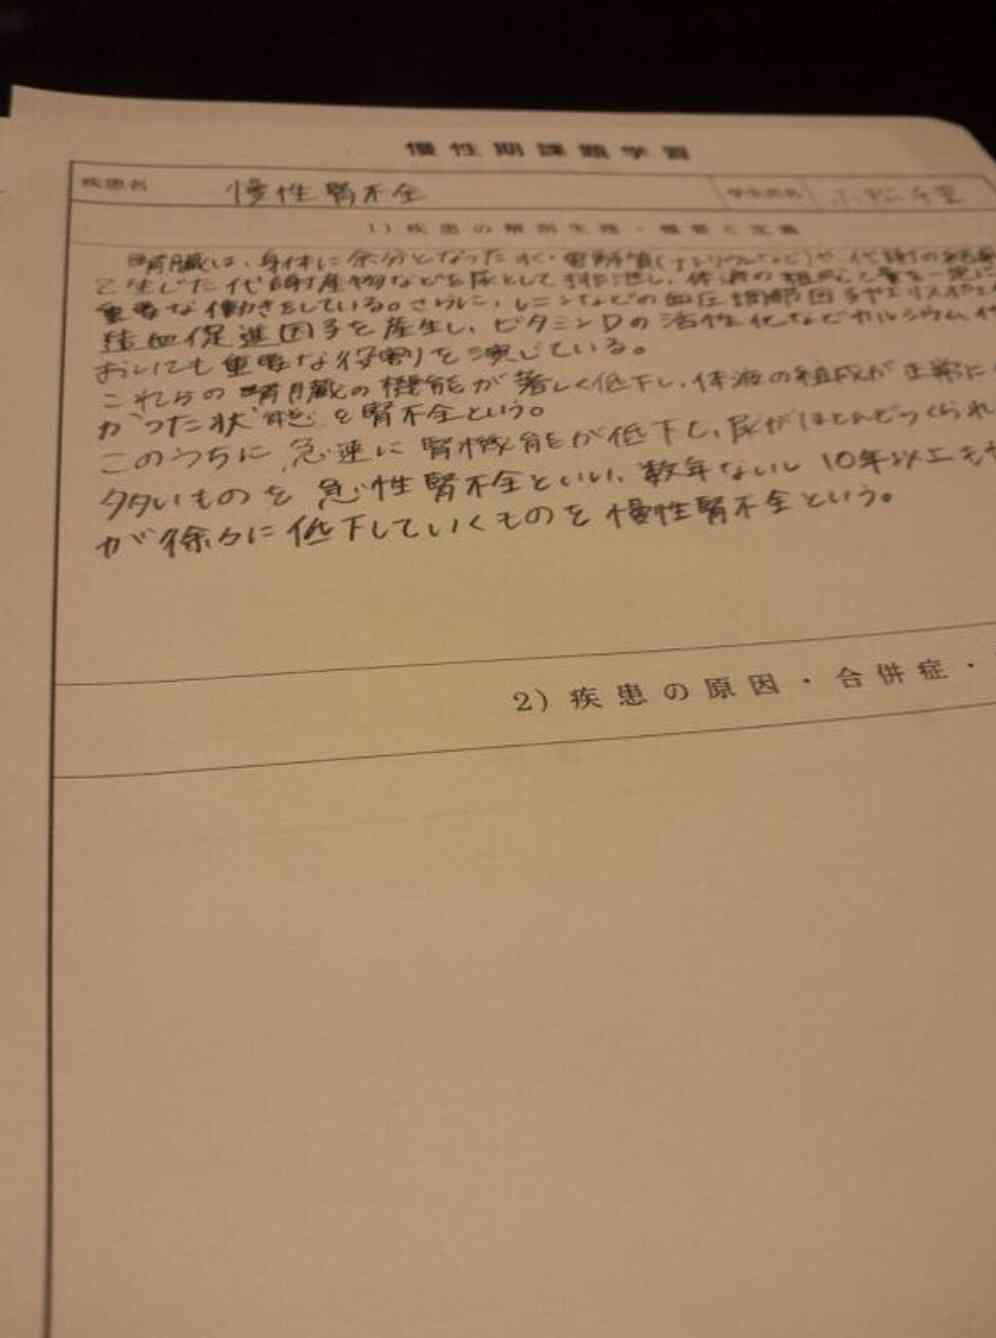 慢性期課題学習
疾患名 慢性腎不全 学生氏名 小松
1) 疾患の解剖生理・概要と定義
腎臓は、身体に余分となった水・電解質(ナトリウムなど)や、代謝の結果
生じた代謝産物などを尿として排泄し、体液の組成と量を一定に
重要な働きをしている。さらに、レニンなどの血圧調節因子やエリスロポエ
造血促進因子を産生し、ビタミンDの活性化などカルシウム代
おいても重要な役割を演じている。
これらの腎臓の機能が著しく低下し、体液の組成が正常に
かった状態を腎不全という。
このうちに、急速に腎機能が低下し、尿がほとんどつくられ
多いものを急性腎不全といい、数年ないし10年以上も
が徐々に低下していくものを慢性腎不全という。
2) 疾患の原因・合併症・